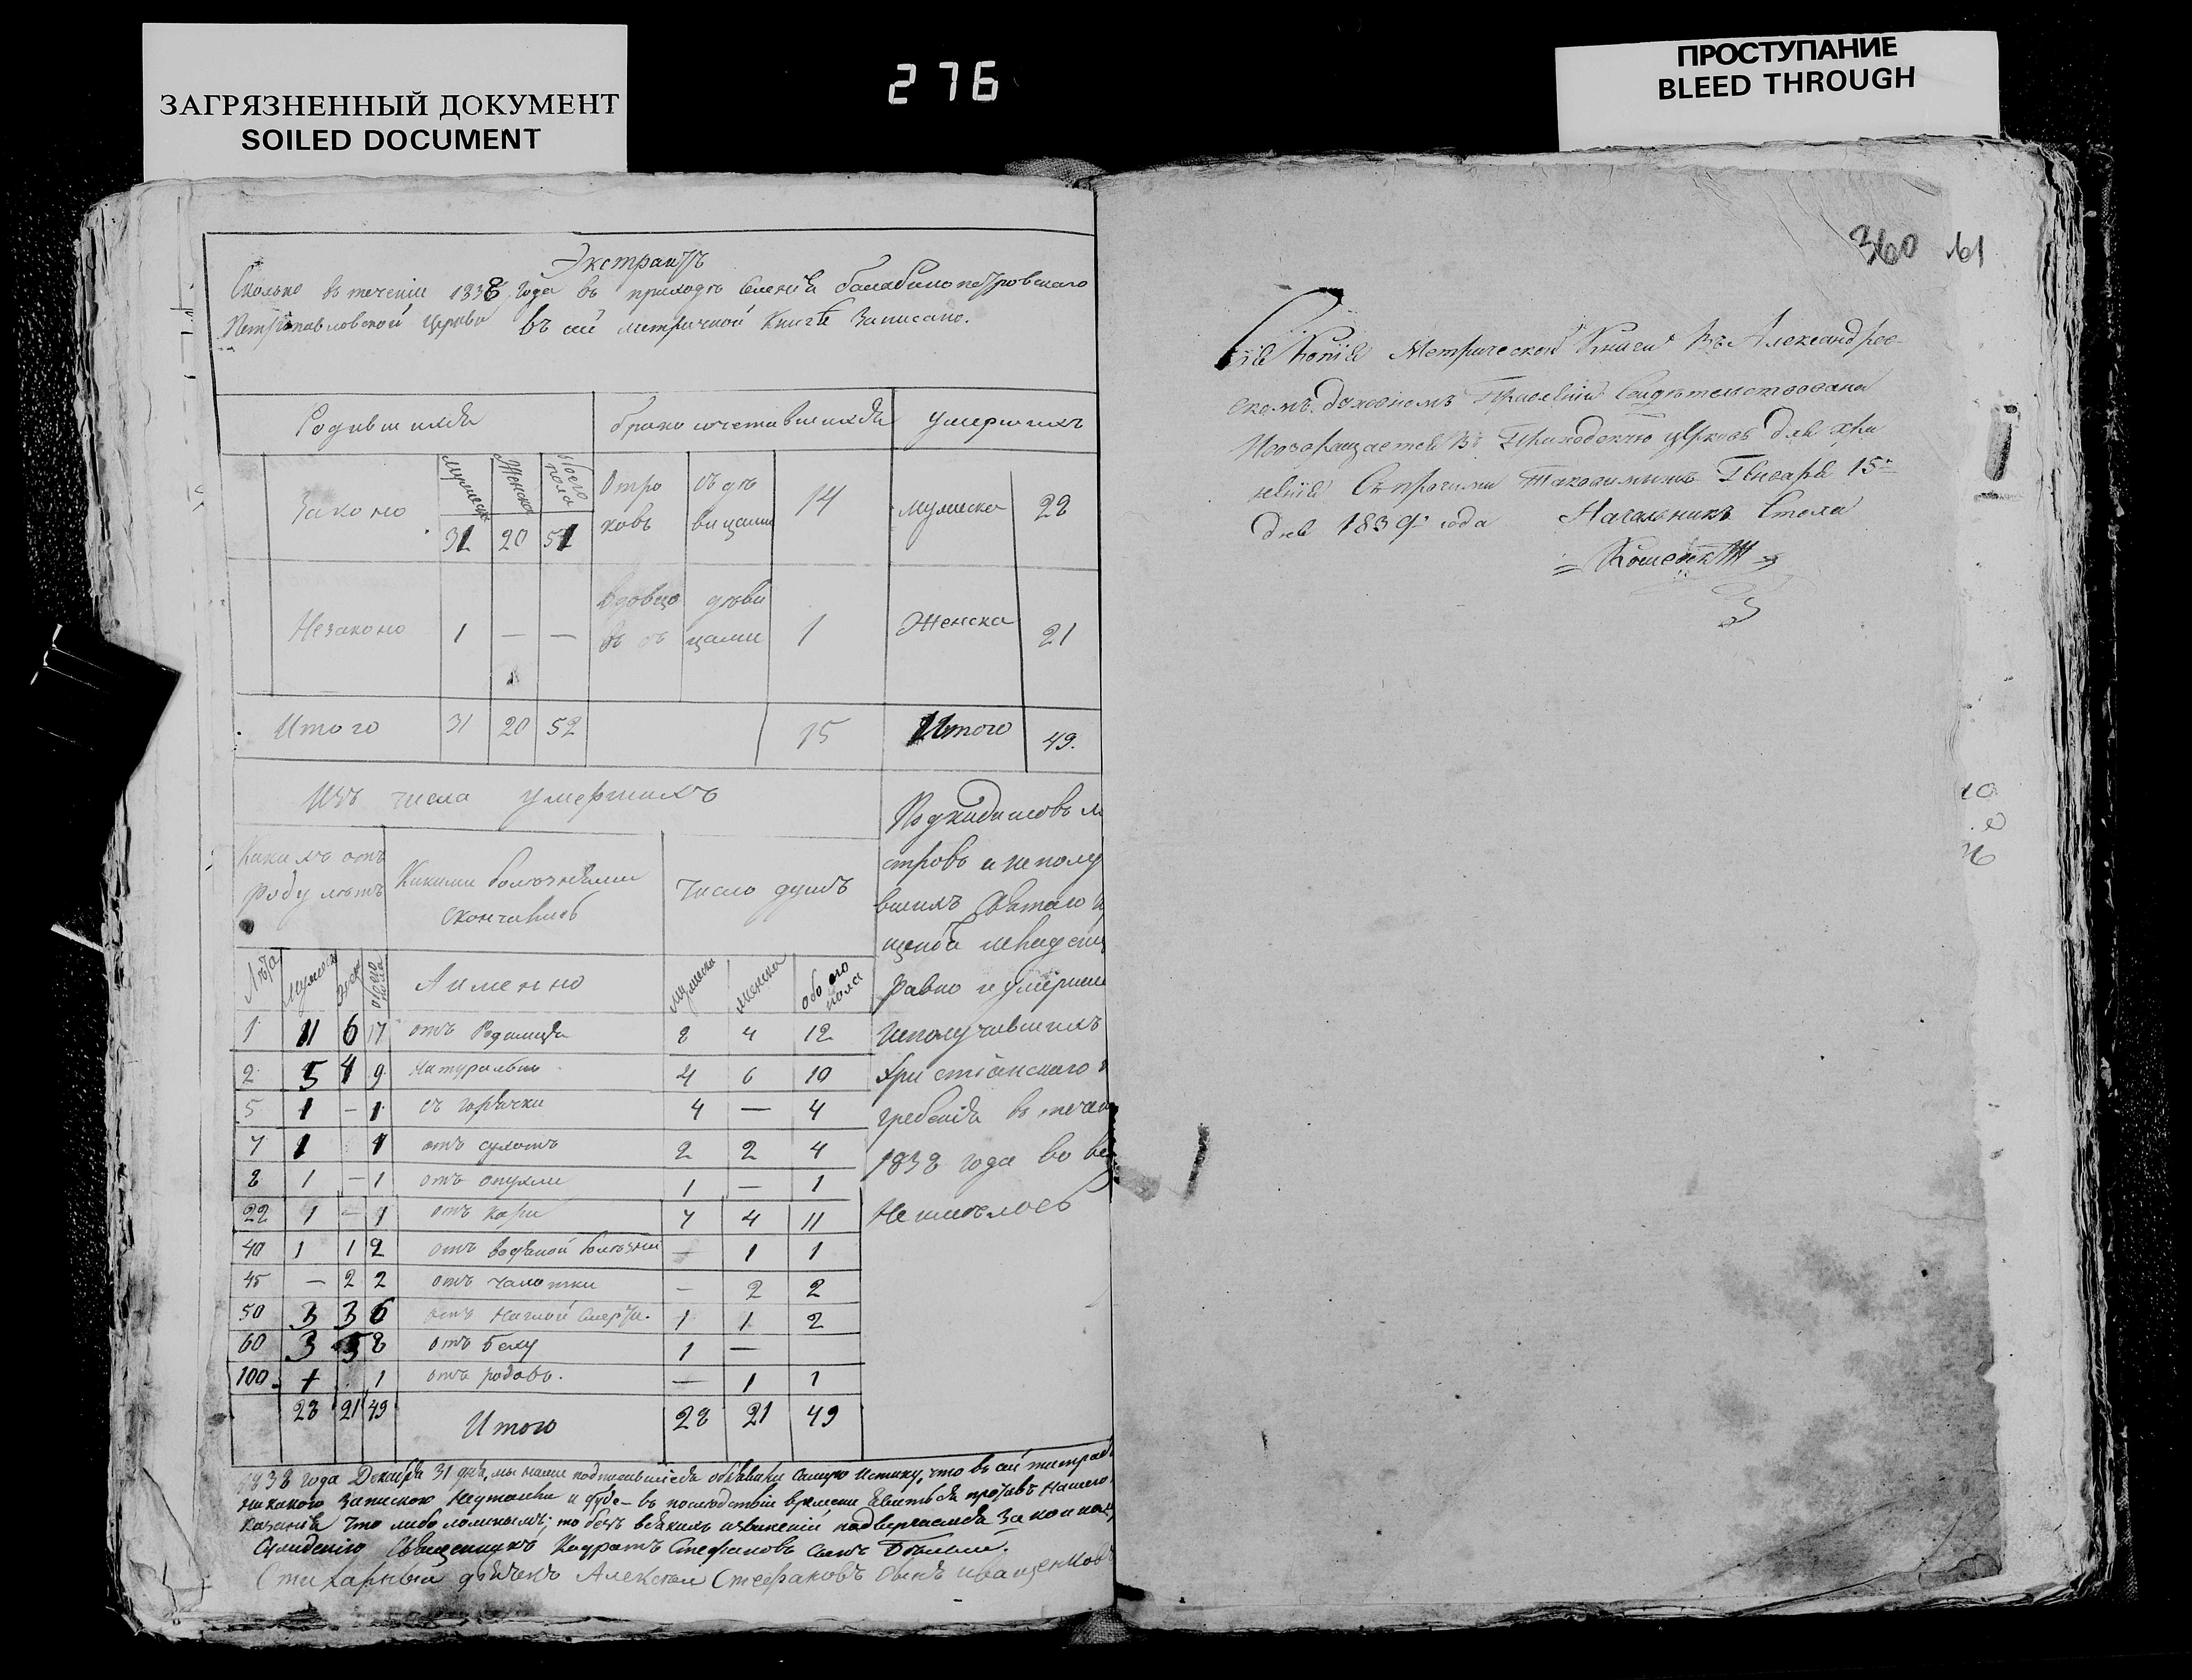 ЗАГРЯЗНЕННЫЙ ДОКУМЕНТ
SOILED DOCUMENT
276
ПРОСТУПАНИЕ
BLEED THROUGH
Экстрактъ
Сколько въ теченіи 1838 года въ приходѣ селенія балабинопетровскаго
Петропавловской церкви въ сей метричной Книгѣ Записано.
Родившихся
бракосочетавшихся
умершихъ
Законо
мужеска
Женска
обоего пола
31 20 51
Отро ковъ
съ дѣ вицами
14
мужеска
28
Незаконо
1 — —
вдовцо въ съ
дѣви цами
1
Женска
21
Итого 31 20 52
15
Итого 49.
Изъ числа умершихъ
Какихъ отъ роду лѣтъ
Какими болѣзнями скончались
Число душъ
Лѣта
мужеска
жен
обоего пола
А именно
мужеска
женска
обоего пола
1 11 6 17 отъ Родимца 8 4 12
2 5 4 9 натурально 4 6 10
5 1 — 1 съ горячки 4 — 4
7 1 1 отъ сухотъ 2 2 4
8 1 — 1 отъ опухли 1 — 1
22 1 — 1 отъ кори 7 4 11
40 1 1 2 отъ водяной болѣзни — 1 1
45 — 2 2 отъ чахотки — 2 2
50 3 3 6 отъ Наглой Смерти. 1 1 2
60 3 5 8 отъ 1 —
100 1 1 отъ родовъ. — 1 1
28 21 49 Итого 28 21 49
Подкидишовъ
и неполу
вшихъ Святаго
щенія
равно и умерши
неполучившихъ
Христіанскаго
гребенія въ тече
1838 года во
Не имѣлось
1838 года Декабря 31 дня, мы ниже подписавшіеся объявили самую истину, что въ сей тетради
никакого не и буде въ послѣдствіи времени явиться противъ нашего
казанія что либо ложнымъ; то безъ всякихъ извиненій подвергаемся законному
Сужденію Священникъ Кодратъ Стефановъ сынъ
Стихарный дьячекъ Алексѣй Стефановъ сынъ Иващенковъ
360 161
Сія Копія Метрической Книги въ Александров-
скомъ духовномъ Правленіи Свидѣтельствована
и возвращается въ Приходскую церковь для хра
ненія Съ прочими таковымижъ Генваря 15го
дня 1839го года Начальникъ Стола